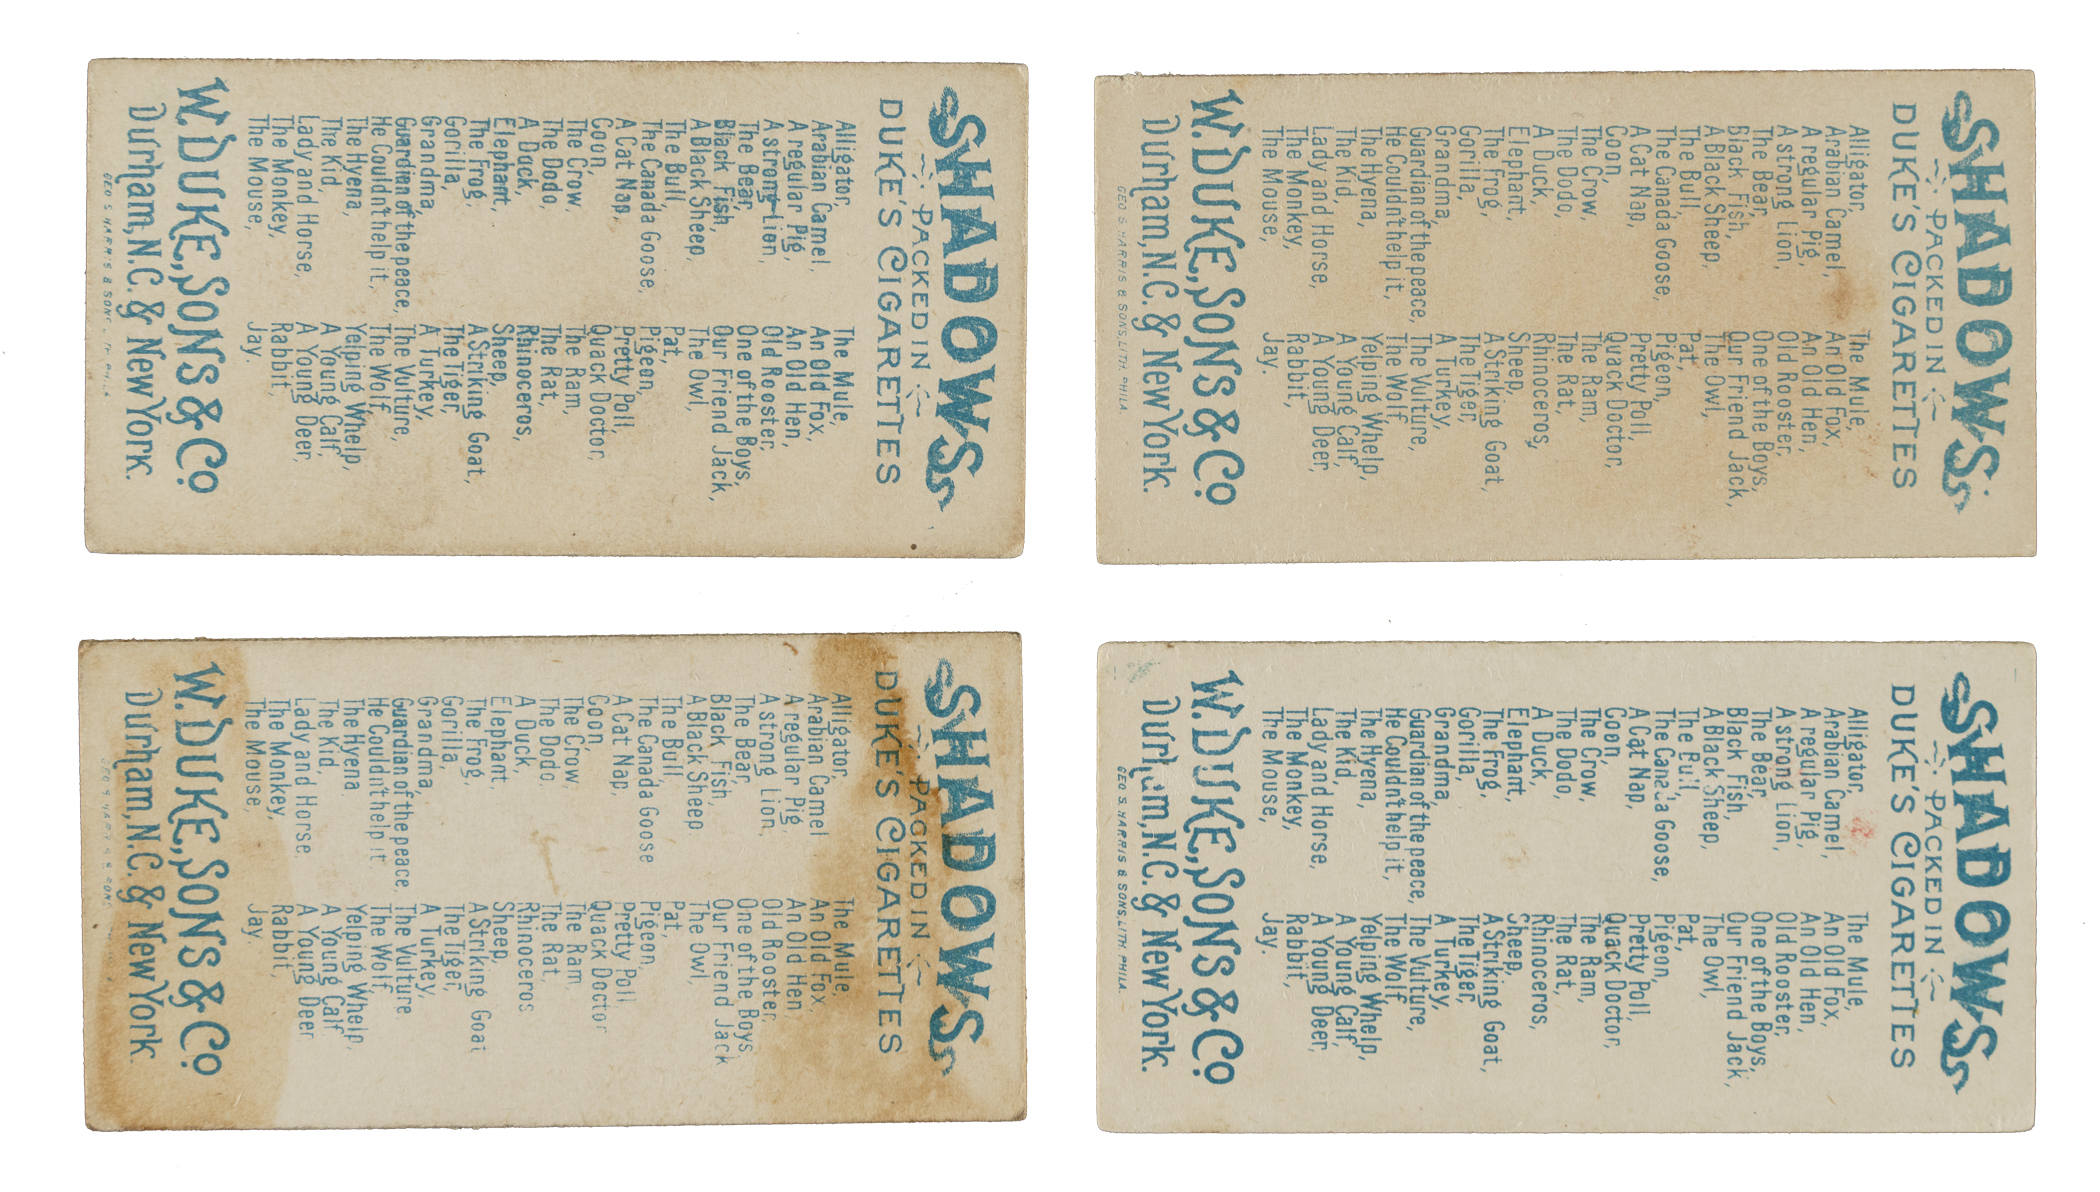 SHADOWS
PACKED IN
DUKE'S CIGARETTES
Alligator,
Arabian Camel,
A regular Pig,
A strong Lion,
The Bear,
Black Fish,
A Black Sheep,
The Bull,
The Canada Goose,
A Cat Nap,
Coon,
The Crow,
The Dodo,
A Duck,
Elephant,
The Frog,
Gorilla,
Grandma,
Guardian of the peace,
He Couldn't help it,
The Hyena,
The Kid,
Lady and Horse,
The Monkey,
The Mouse,
The Mule,
An Old Fox,
An Old Hen,
Old Rooster,
One of the Boys,
Our Friend Jack,
The Owl,
Pat,
Pigeon,
Pretty Poll,
Quack Doctor,
The Ram,
The Rat,
Rhinoceros,
Sheep,
A Striking Goat,
The Tiger,
A Turkey,
The Vulture,
The Wolf
Yelping Whelp,
A Young Calf,
A Young Deer,
Rabbit,
Jay.
W. DUKE, SONS & CO
Durham, N.C. & New York.
GEO S HARRIS & SONS, PHILA
SHADOWS
PACKED IN
DUKE'S CIGARETTES
Alligator,
Arabian Camel,
A regular Pig,
A strong Lion,
The Bear,
Black Fish,
A Black Sheep,
The Bull,
The Canada Goose,
A Cat Nap,
Coon,
The Crow,
The Dodo,
A Duck,
Elephant,
The Frog,
Gorilla,
Grandma,
Guardian of the peace,
He Couldn't help it,
The Hyena,
The Kid,
Lady and Horse,
The Monkey,
The Mouse,
The Mule,
An Old Fox,
An Old Hen,
Old Rooster,
One of the Boys,
Our Friend Jack,
The Owl,
Pat,
Pigeon,
Pretty Poll,
Quack Doctor,
The Ram,
The Rat,
Rhinoceros,
Sheep,
A Striking Goat,
The Tiger,
A Turkey,
The Vulture,
The Wolf,
Yelping Whelp,
A Young Calf,
A Young Deer,
Rabbit,
Jay.
W. DUKE, SONS & CO
Durham, N.C. & New York.
GEO S HARRIS & SONS, LITH. PHILA
SHADOWS
PACKED IN
DUKE'S CIGARETTES
Alligator,
Arabian Camel
A regular Pig,
A strong Lion,
The Bear,
Black Fish,
A Black Sheep
The Bull,
The Canada Goose
A Cat Nap,
Coon,
The Crow,
The Dodo,
A Duck,
Elephant,
The Frog,
Gorilla,
Grandma,
Guardian of the peace,
He Couldn't help it
The Hyena
The Kid,
Lady and Horse,
The Monkey,
The Mouse,
The Mule,
An Old Fox,
An Old Hen,
Old Rooster,
One of the Boys
Our Friend Jack
The Owl,
Pat,
Pigeon,
Pretty Poll,
Quack Doctor
The Ram
The Rat,
Rhinoceros
Sheep,
A Striking Goat
The Tiger,
A Turkey,
The Vulture,
The Wolf,
Yelping Whelp,
A Young Calf
A Young Deer
Rabbit,
Jay.
W. DUKE, SONS & CO
Durham, N.C. & New York.
GEO S HARRIS & SONS
SHADOWS
PACKED IN
DUKE'S CIGARETTES
Alligator,
Arabian Camel,
A regular Pig,
A strong Lion,
The Bear,
Black Fish,
A Black Sheep,
The Bull,
The Canada Goose,
A Cat Nap,
Coon,
The Crow,
The Dodo,
A Duck,
Elephant,
The Frog,
Gorilla,
Grandma,
Guardian of the peace,
He Couldn't help it,
The Hyena,
The Kid,
Lady and Horse,
The Monkey,
The Mouse,
The Mule,
An Old Fox,
An Old Hen,
Old Rooster,
One of the Boys,
Our Friend Jack,
The Owl,
Pat,
Pigeon,
Pretty Poll,
Quack Doctor,
The Ram,
The Rat,
Rhinoceros,
Sheep,
A Striking Goat,
The Tiger,
A Turkey,
The Vulture,
The Wolf
Yelping Whelp,
A Young Calf,
A Young Deer,
Rabbit,
Jay.
W. DUKE, SONS & CO
Durham, N.C. & New York.
GEO S. HARRIS & SONS, LITH. PHILA.